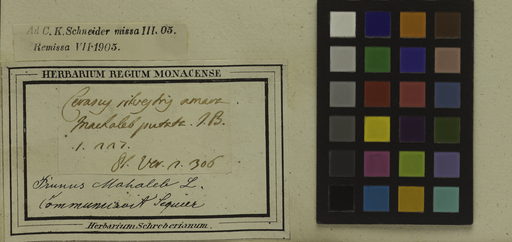 Ad C. K. Schneider missa III. 05.
Remissa VII-1905.
HERBARIUM REGIUM MONACENSE
Cerasus silvestris amara.
Machaleb putata. I.B.
Pl. Ver. n. 306
Prunus Mahaleb L.
Communicavit Seguier
Herbarium Schreberianum.